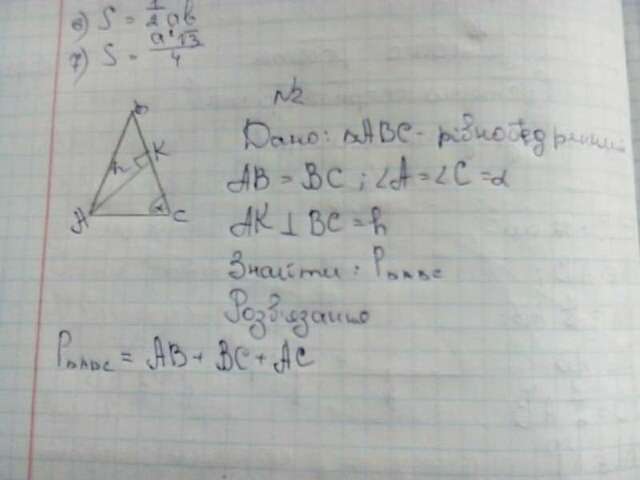 6) S = 1/2 ab
7) S = a²√3/4
№2
B
K
h
A
α
C
Дано: △ABC - рівнобедрений
AB = BC ; ∠A = ∠C = α
AK ⊥ BC = h
Знайти: P△ABC
Розв'язання
P△ABC = AB + BC + AC